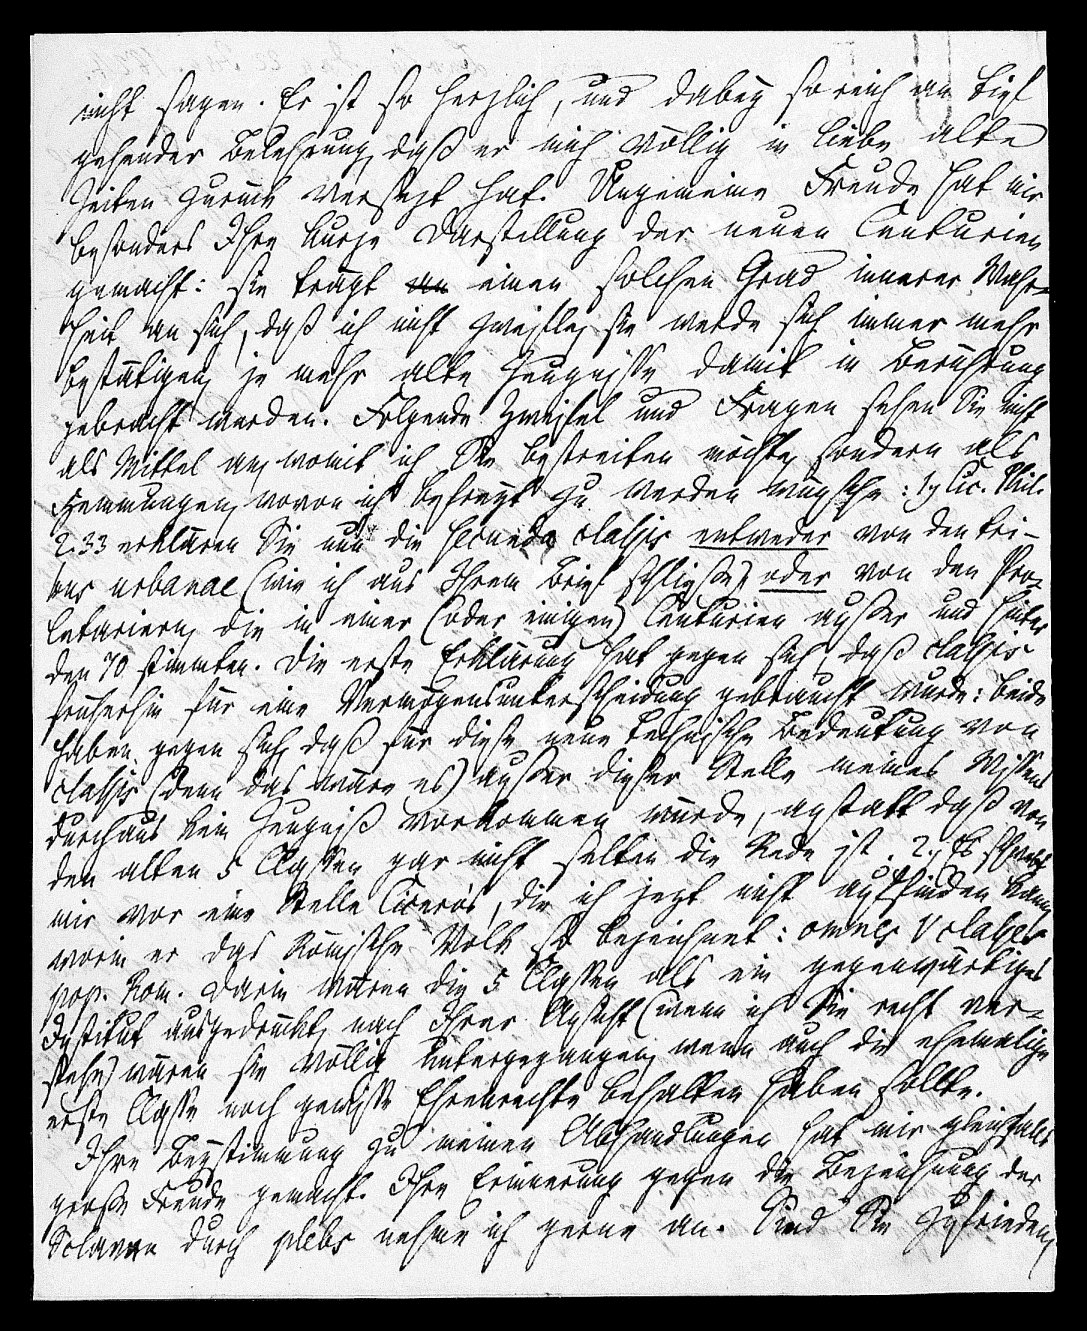 nicht sagen. Er ist so herzlich, und dabey so reich an tief
gehender Belehrung, daß er mich völlig in liebe alte
Zeiten zurück versezt hat. Ungemeine Freude hat mir
besonders Ihre kurze Darstellung der neuen Centurien
gemacht: sie trägt an einen solchen Grad innerer Wahr-
heit an sich, daß ich nicht zweifle, sie werde sich immer mehr
bestätigen, je mehr alte Zeugnisse damit in Berührung
gebracht werden. Folgende Zweifel und Fragen sehen Sie nicht
als Mittel an, womit ich Sie bestreiten möchte, sondern als
Hemmungen, wovon ich befreyt zu werden wünsche: 1, Cic. Phil.
2.33 erklären Sie nun die secunda classis entweder von den tri-
bus urbanae (wie ich aus Ihrem Brief schließe), oder von den Pro-
letariern, die in einer (oder einigen) Centurien außer und hinter
den 70 stimmten. Die erste Erklärung hat gegen sich, daß classis
früherhin für eine Vermögensunterscheidung gebraucht wurde: beide
haben gegen sich, daß für diese neue technische Bedeutung von
classis (denn das wäre es) außer dieser Stelle meines Wissens
durchaus kein Zeugniß vorkommen würde, anstatt daß von
den alten 5 Classen gar nicht selten die Rede ist. 2, Es schwebt
mir vor eine Stelle Cicero's, die ich jezt nicht auffinden kann,
worin er das Römische Volk so bezeichnet: omnes V classes
pop. Rom. Darin wären die 5 Classen als ein gegenwärtiges
Institut ausgedrückt, nach Ihrer Ansicht (wenn ich Sie recht ver-
stehe) wären sie völlig untergegangen, wenn auch die ehemalige
erste Classe noch gewisse Ehrenrechte behalten haben sollte.
Ihre Beystimmung zu meinen Abhandlungen hat mir gleichfalls
große Freude gemacht. Ihre Erinnerung gegen die Bezeichnung der
Sclaven durch plebs nehme ich gerne an. Sind Sie zufrieden,